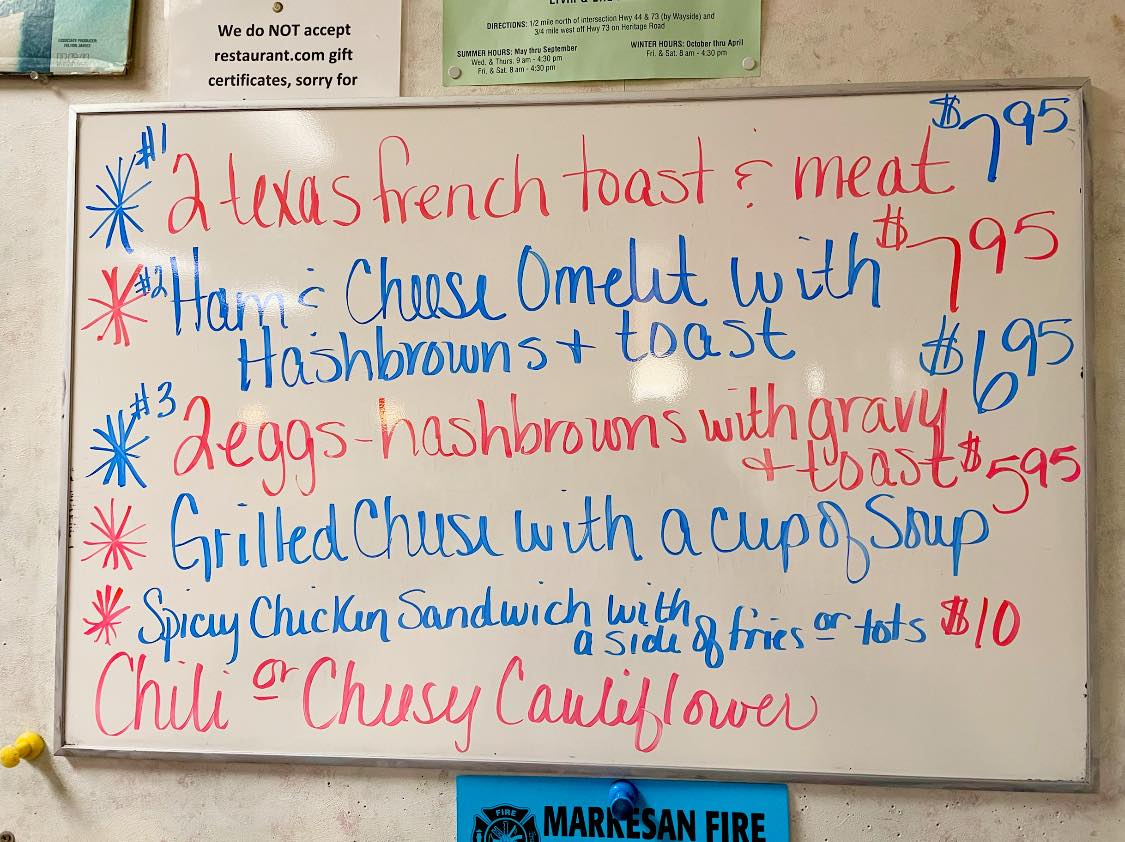 We do NOT accept
restaurant.com gift
certificates, sorry for
DIRECTIONS: 1/2 mile north of intersection Hwy 44 & 73 (by Wayside) and
3/4 mile west off Hwy 73 on Heritage Road
SUMMER HOURS: May thru September
Wed. & Thurs. 9 am - 4:30 pm
Fri. & Sat. 8 am - 4:30 pm
WINTER HOURS: October thru April
Fri. & Sat. 8 am - 4:30 pm
#1 2 texas french toast & meat $7 95
#2 Ham & Cheese Omelet with $7 95
Hashbrowns + toast
$6 95
#3 2 eggs - hashbrowns with gravy
+ toast $5 95
Grilled Cheese with a cup of Soup
Spicy Chicken Sandwich with
a side of fries or tots $10
Chili or Cheesy Cauliflower
FIRE
MARKESAN FIRE